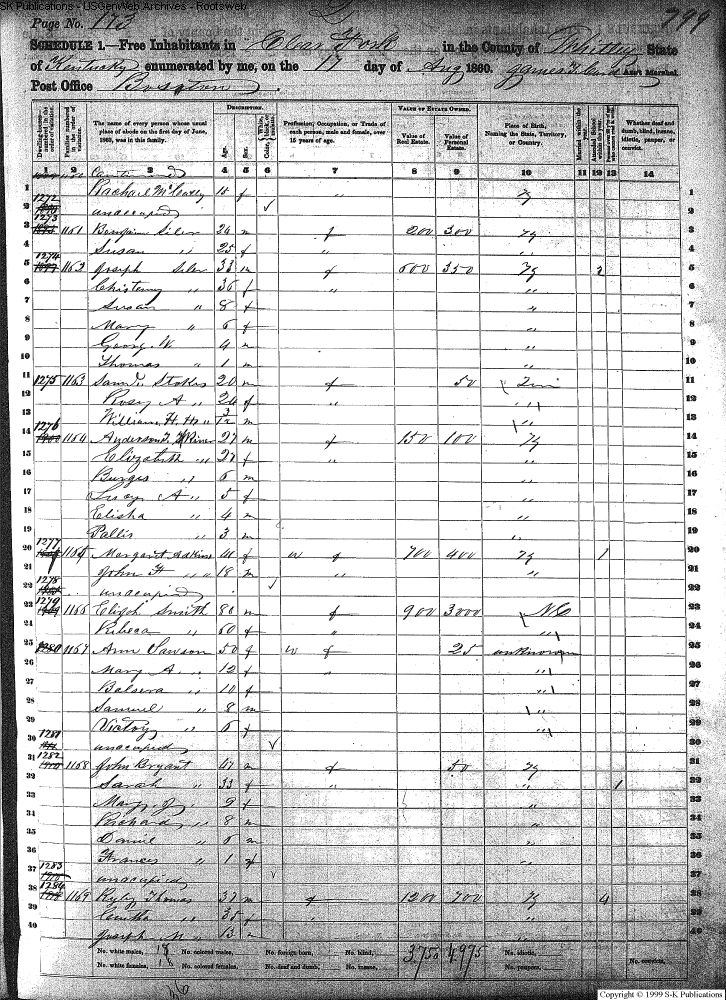 SK Publications - USGenWeb Archives - Rootsweb
Page No. 173
799
SCHEDULE 1.—Free Inhabitants in Clear Fork in the County of Whitley State
of Kentucky enumerated by me, on the 17 day of Aug 1860. Ass't Marshal.
Post Office Boston
DESCRIPTION. VALUE OF ESTATE OWNED.
Dwelling-houses—numbered in the order of visitation. Families numbered in the order of visitation. The name of every person whose usual place of abode on the first day of June, 1860, was in this family. Age. Sex. Color, White, black, or mulatto. Profession, Occupation, or Trade of each person, male and female, over 15 years of age. Value of Real Estate. Value of Personal Estate. Place of Birth, Naming the State, Territory, or Country. Married within the year. Attended School within the year. Whether deaf and dumb, blind, insane, idiotic, pauper, or convict.
1 2 3 4 5 6 7 8 9 10 11 12 13 14
1 Rachael McCulley f " Ky 1
2 1272 unoccupied ✓ 2
3 1273 1161 Siler 24 m f 200 300 Ky 3
4 Susan " 25 f " " 4
5 1274 1162 Joseph Siler 33 m f 600 350 Ky 2 5
6 " 36 f " " 6
7 Susan " 8 f " 7
8 Mary " 6 f " 8
9 George W. " 4 m " 9
10 Thomas " 1 m " 10
11 1275 1163 Saml. Stokes 20 m f 50 11
12 Rosey A " 24 f " 12
13 William H. " 3/12 m " 13
14 1276 1164 Anderson 27 m f 150 100 Ky 14
15 Elizabeth " 27 f " " 15
16 Burges " 6 m " 16
17 Lucy A " 5 f " 17
18 Elisha " 4 m " 18
19 Pallis " 3 m " 19
20 1277 1165 Margaret Adkins f w f 700 400 Ky 1 20
21 John F " " 18 m " " 21
22 1278 unoccupied ✓ 22
23 1279 1166 Elijah Smith 80 m f 900 3000 NC 23
24 Rebeca " 60 f " " 24
25 1280 1167 Ann Lawson 50 f w f 25 unknown 25
26 Mary A. " 12 f " " 26
27 " 10 f " 27
28 Samuel " 8 m " 28
29 Victory " 6 f " 29
30 1281 unoccupied ✓ 30
31 1282 1168 John Bryant 47 m f 50 Ky 31
32 Sarah " 33 f " " 1 32
33 Mary J. " 9 f " 33
34 Richard " 8 m " 34
35 Daniel " 6 m " 35
36 Frances " 1 f " 36
37 1283 unoccupied ✓ 37
38 1284 1169 Ryley Thomas 37 m f 1200 700 Ky 4 38
39 " 35 f " " 39
40 Joseph M " 13 m " 40
No. white males, 18 No. colored males, No. foreign born, No. blind, 3,750 4,975 No. idiotic,
No. white females, No. colored females, No. deaf and dumb, No. insane, No. paupers, No. convicts,
Copyright © 1999 S-K Publications